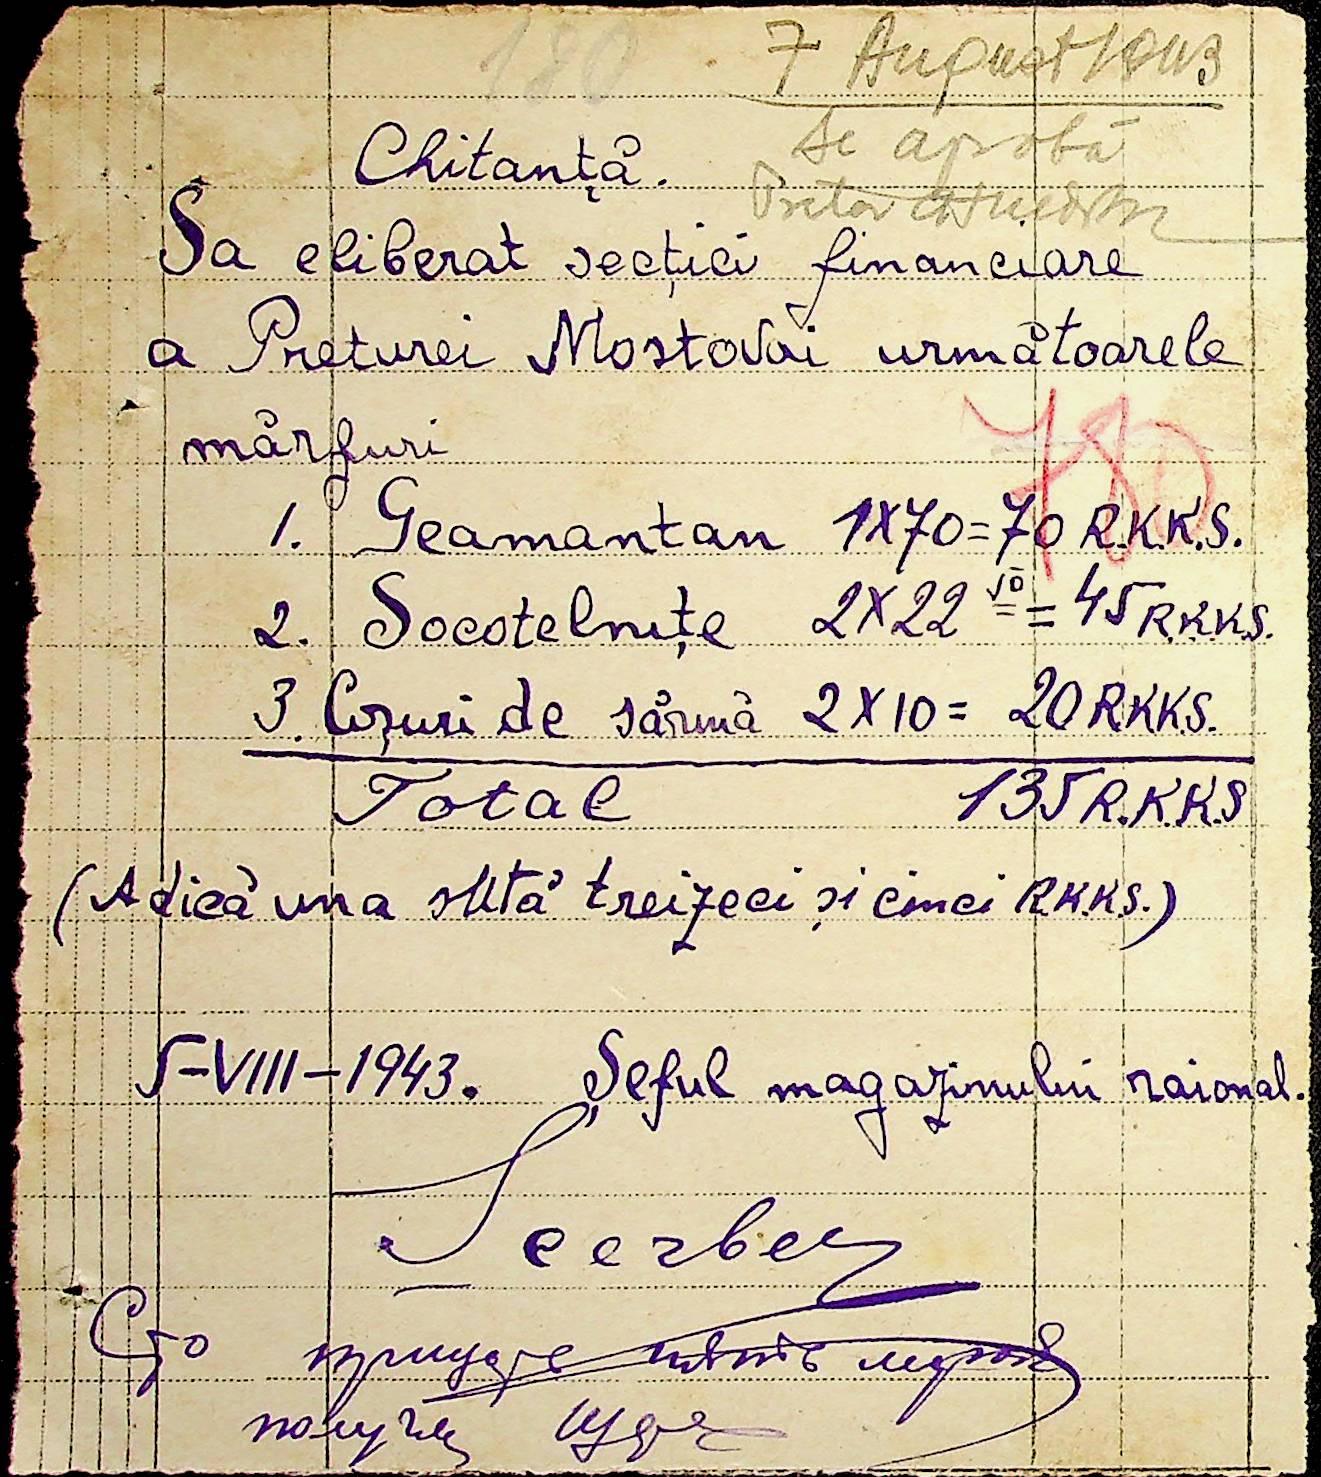 180
7 August 1943
Se aprobă
Pretor
Chitanță.
Sa eliberat secției financiare
a Preturei Mostovoi următoarele
mărfuri
780
1. Geamantan 1X70=70 R.K.K.S.
2. Socotelnițe 2X22 50 = 45 R.K.K.S.
3. Coșuri de sârmă 2X10= 20 RKKS.
Total 135 R.K.K.S
(Adică una sută treizeci și cinci R.K.K.S.)
5-VIII-1943. Șeful magazinului raional.
Сто тридцать пять марок
получил